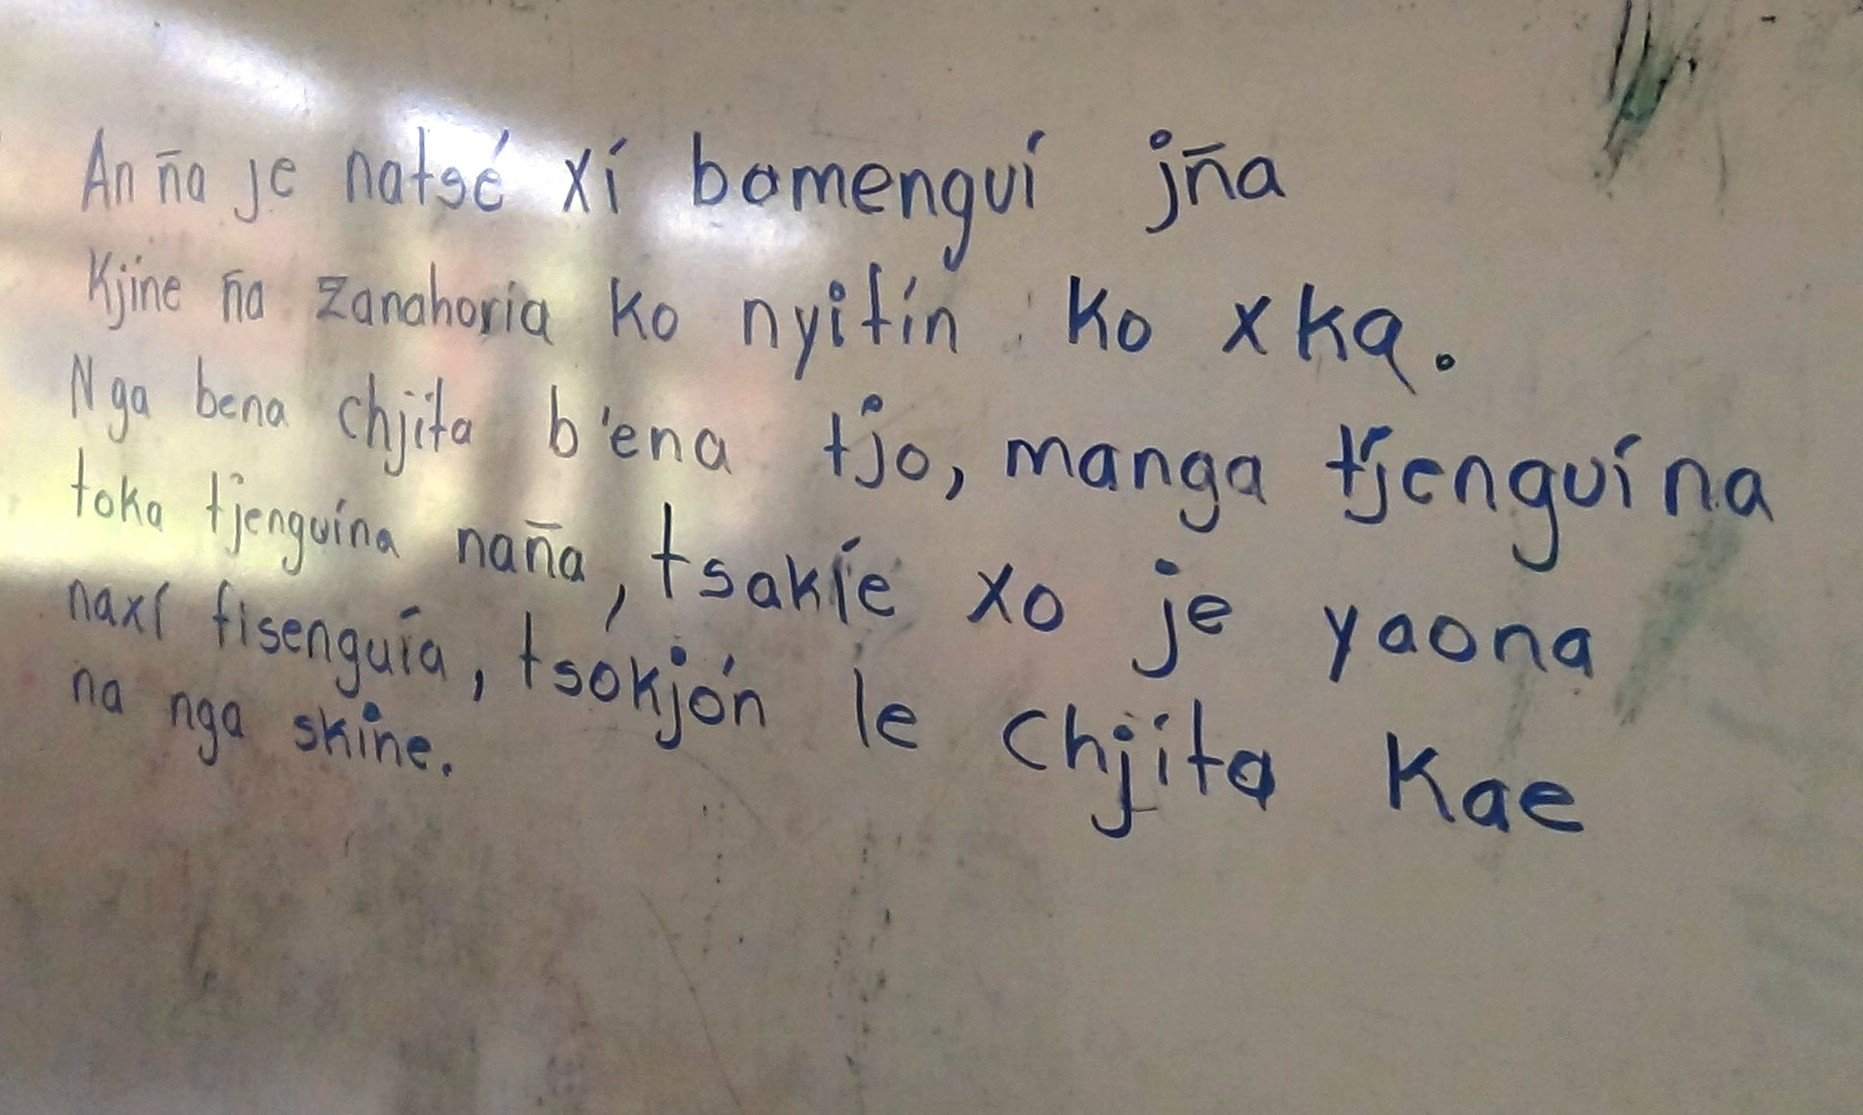 An n̄a je natsé xí bamenguí jn̄a
Kjine n̄a zanahoria ko nyifín ko xka.
Nga bena chjita b'ena tjo, manga tjenguí na
toka tjenguína nan̄a, tsakíe xo je yaona
naxí fisenguía, tsókjón le chjita kae
na nga skine.